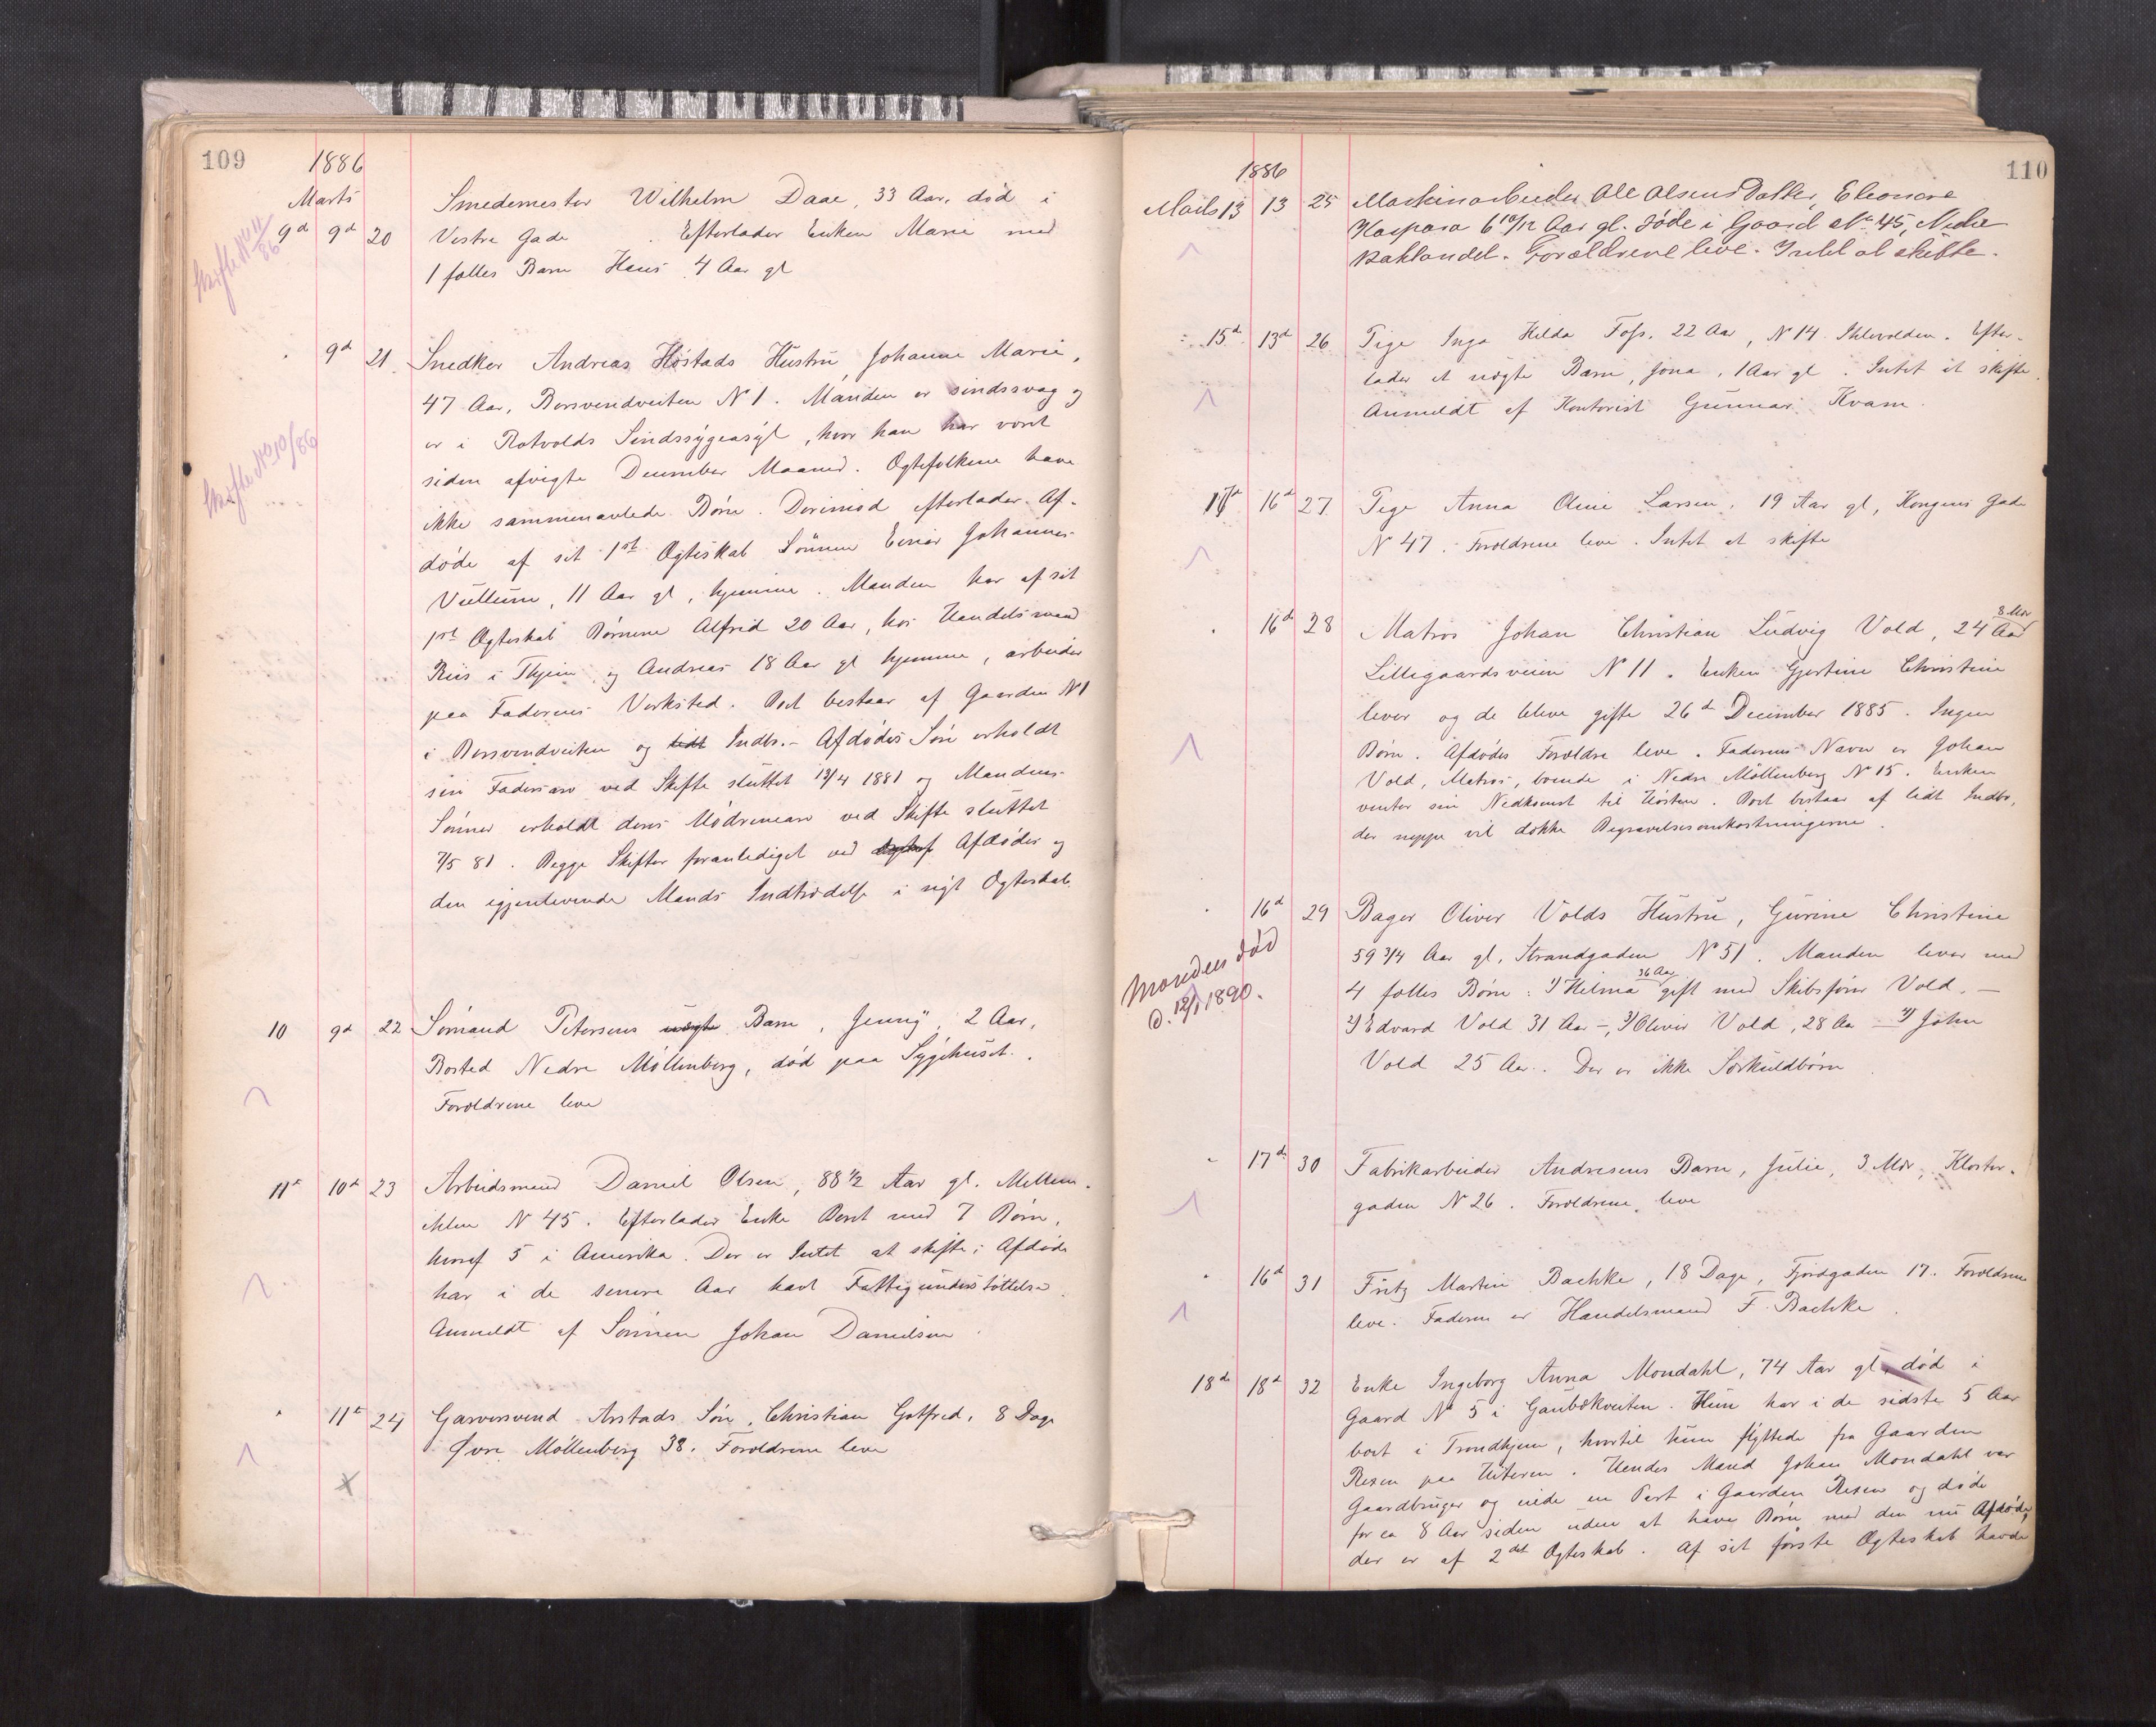 109
1886
Marts
Skifte No 11/86
9d 9d 20 Smedemester Wilhelm Daae, 33 Aar, død i
Vestre Gade . Efterlader Enken Marie med
1 fælles Barn Hans 4 Aar gl
Skifte No 10/86
" 9d 21. Snedker Andreas Høstads Hustru, Johanne Marie,
47 Aar, Borsvendveiten N 1. Manden er sindssvag og
er i Rotvolds Sindssygeasyl, hvor han har været
siden afvigte December Maaned. Ægtefolkene have
ikke sammenavlede Børn. Derimod efterlader Af-
døde af sit 1ste Ægteskab Sønnen Einar Johannes
Vullum, 11 Aar gl, hjemme. Manden har af sit
1ste Ægteskab Børnene Alfred 20 Aar, hos Handelsmand
Riis i Thjem og Andreas 18 Aar gl hjemme, arbeider
paa Faderens Værksted. Boet bestaar af Gaarden N 1
i Borsvendveiten og lidt Indbo.- Afdødes Søn erholdt
sin Fadersarv ved Skifte sluttet 13/4 1881 og Mandens
Sønner erholdt deres Mødrenearv ved Skifte sluttet
7/5 81. Begge Skifter foranlediget ved Afdødes og
den igjenlevende Mands Indtrædelse i nyt Ægteskab.
10 9d 22 Sømand Petersens uægte Barn, Jenny, 2 Aar,
Bosted Nedre Møllenberg, død paa Sygehuset.
Forældrene leve
11te 10d 23 Arbeidsmand Daniel Olsen, 88 1/2 Aar gl. Mellem-
ihlen N 45. Efterlader Enke Beret med 7 Børn,
hvoraf 5 i Amerika. Der er Intet at skifte; Afdøde
har i de senere Aar havt Fattigunderstøttelse.
Anmeldt af Sønnen Johan Danielsen.
" 11te 24 Garversvend Arstads Søn, Christian Gotfred, 8 Dage
Øvre Møllenberg 38. Forældrene leve
110
1886
Marts 13 13 25 Maskinarbeider Ole Olsens Datter, Eleonore
Kaspara 6 10/12 Aar gl. døde i Gaard No 45, Nedre
Baklandet. Forældrene leve. Intet at skifte.
" 15d 13d 26 Pige Inga Hilda Foss, 22 Aar, N 14 Ihlevolden. Efter-
lader et uægte Barn, Jona, 1 Aar gl. Intet at skifte.
Anmeldt af Kontorist Gunnar Kvam.
17d 16d 27 Pige Anna Oline Larsen, 19 Aar gl, Kongens Gade
N 47. Forældrene leve. Intet at skifte
" 16d 28 Matros Johan Christian Ludvig Vold, 24 Aar 8 Mdr
Lillegaardsveien N 11. Enken Gjertine Christine
lever og de bleve gifte 26d December 1885. Ingen
Børn. Afdødes Forældre leve. Faderens Navn er Johan
Vold, Matros, boende i Nedre Møllenberg N 15. Enken
venter sin Nedkomst til Høsten. Boet bestaar af lidt Indbo,
der neppe vil dække Begravelsesomkostningerne.
" 16d 29 Bager Oliver Volds Hustru, Gurine Christine
59 3/4 Aar gl, Strandgaden N 51. Manden lever med
Manden død
d. 12/1 1890.
4 fælles Børn: 1) Helma 36 Aar gift med Skibsfører Vold. —
2) Edvard Vold 31 Aar -, 3) Oliver Vold, 28 Aar — 4) John
Vold 25 Aar. Der er ikke Særkuldbørn
" 17d 30 Fabrikarbeider Andresens Barn, Julie, 3 Mdr, Kloster-
gaden N 26. Forældrene leve
" 16d 31 Fritz Martin Bachke, 18 Dage, Fjordgaden 17. Forældrene
leve. Faderen er Handelsmand F. Bachke.
18de 18d 32 Enke Ingeborg Anna Mondahl, 74 Aar gl, død i
Gaard N 5 i Gaubækveiten. Hun har i de sidste 5 Aar
boet i Trondhjem, hvortil hun flyttede fra Gaarden
Risen paa Hiteren. Hendes Mand Johan Mondahl var
Gaardbruger og eiede en Part i Gaarden Risen og døde
for ca 8 Aar siden uden at have Børn med den nu Afdøde,
der er af 2det Ægteskab. Af sit første Ægteskab havde